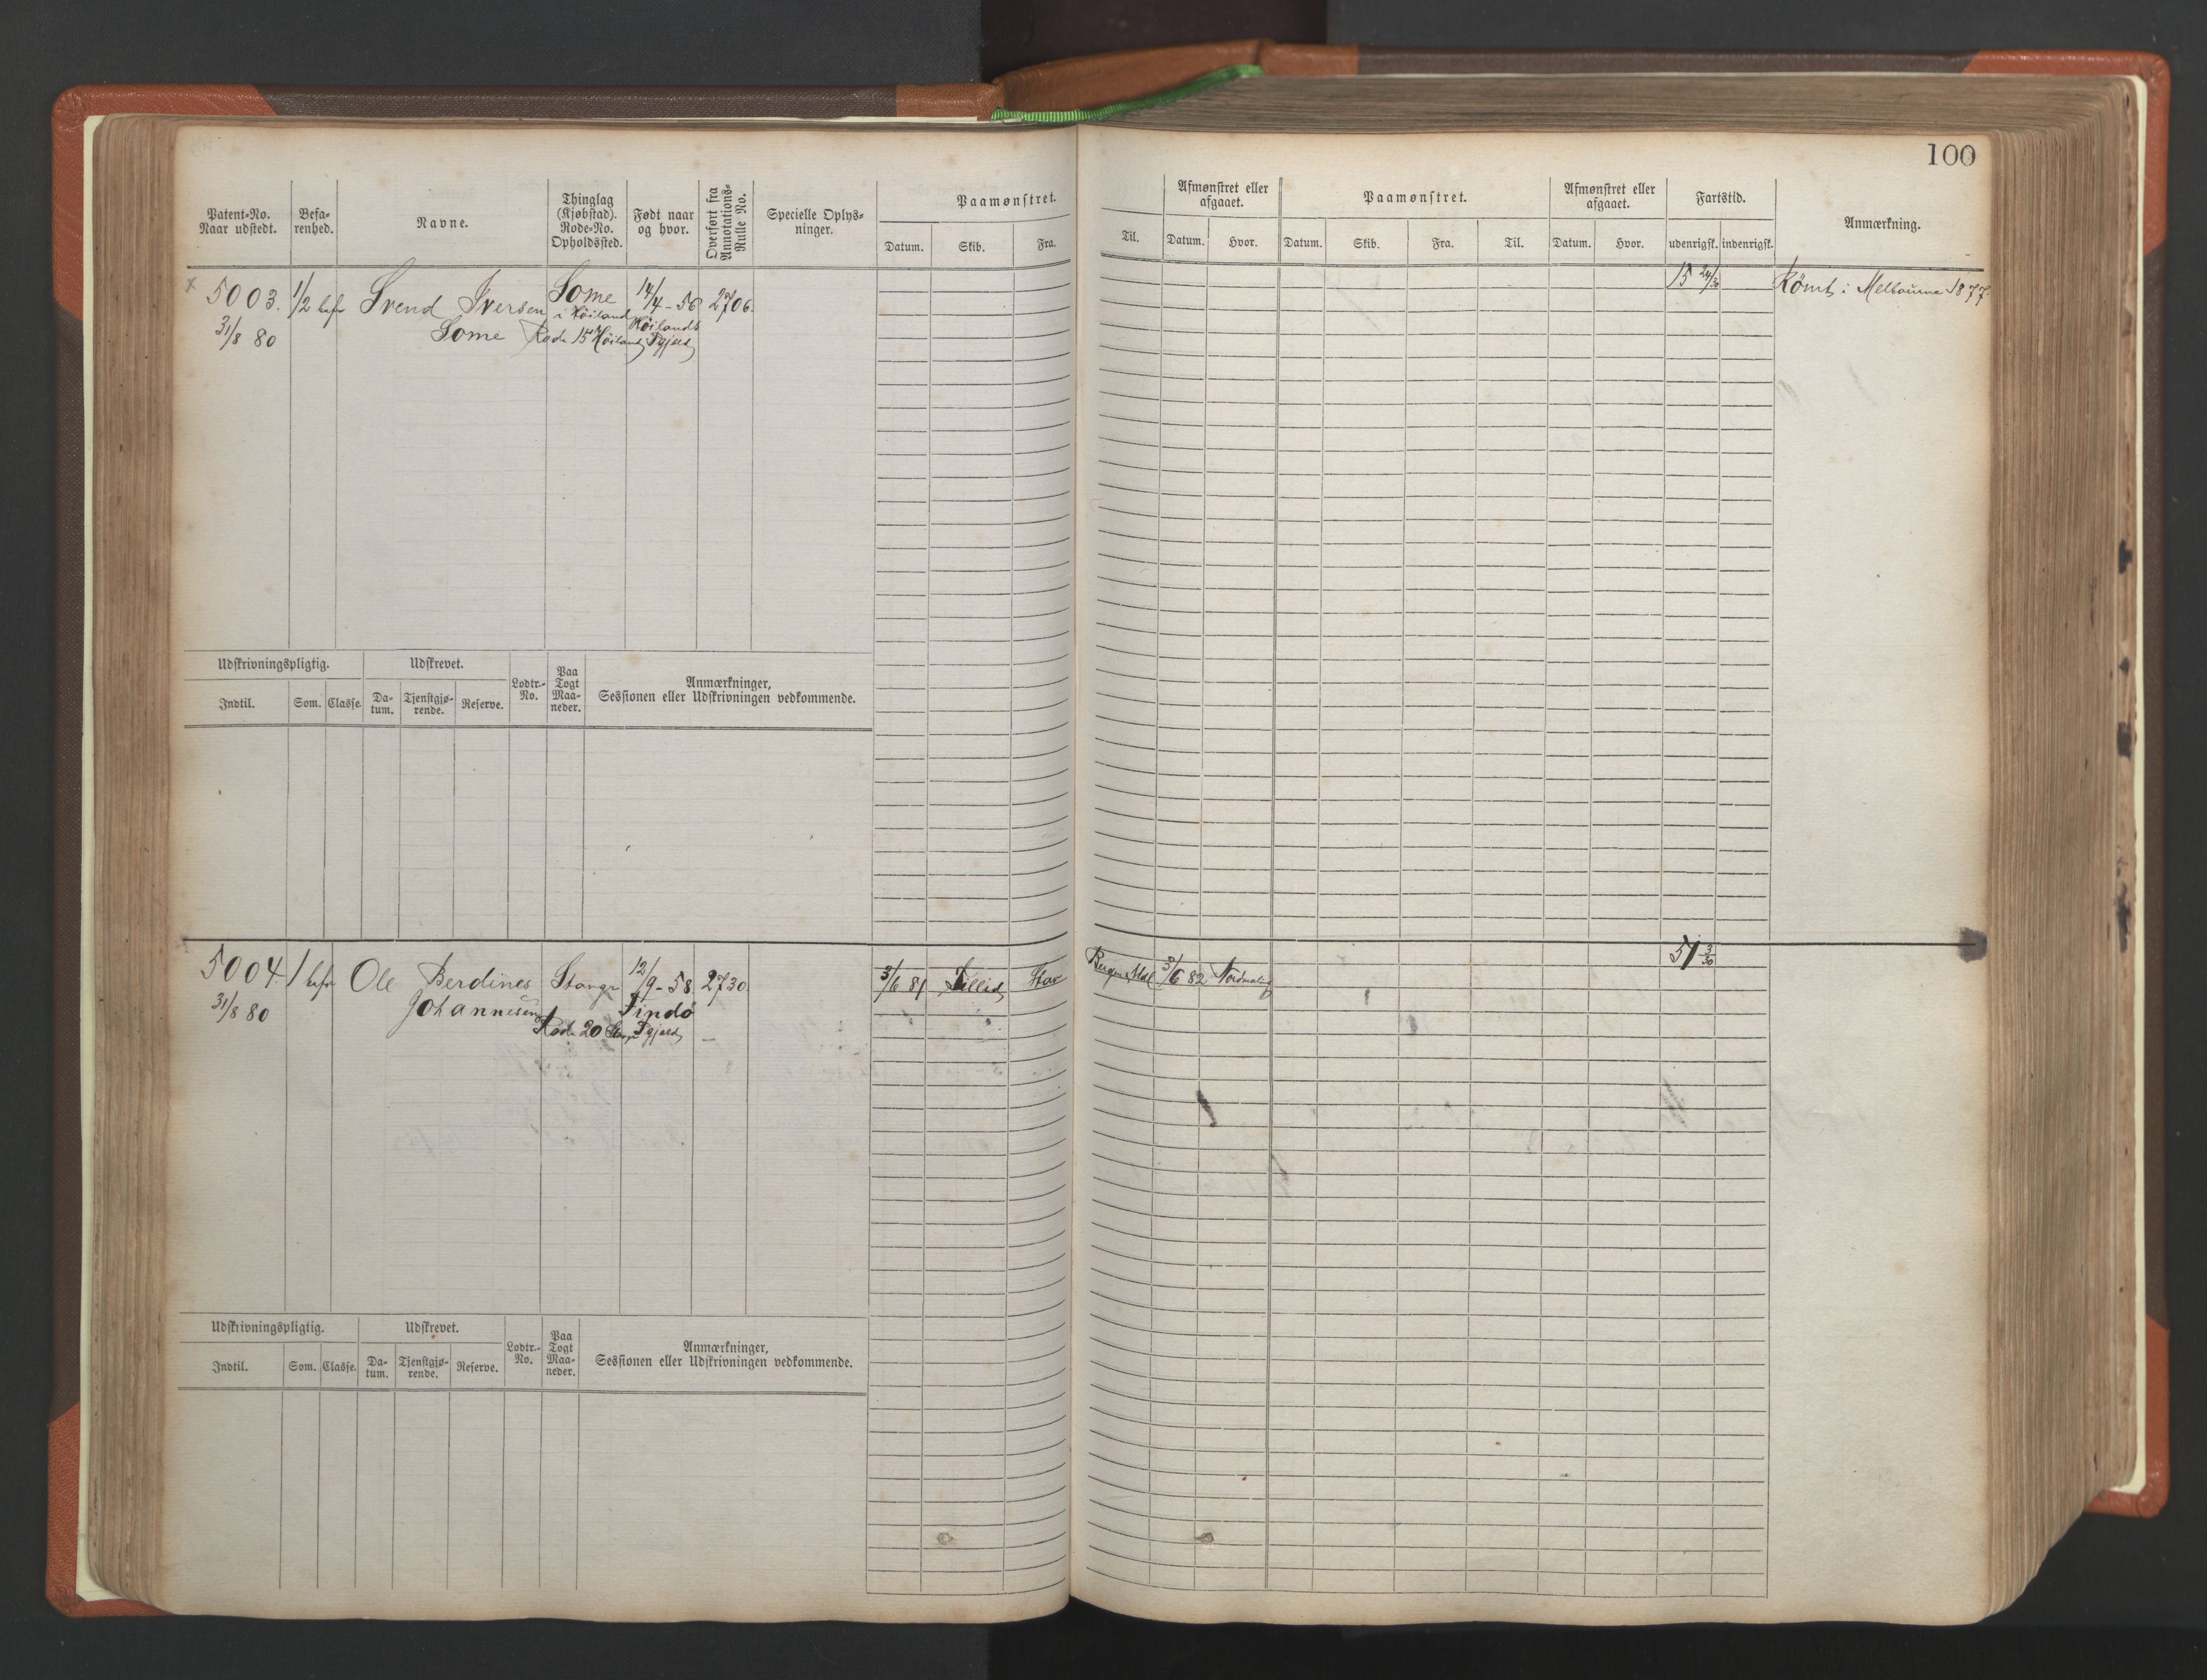 100
Patent-No.
Naar udstedt.
Befa-
renhed.
Navne.
Thinglag
(Kjøbstad).
Rode-No.
Opholdssted.
Født naar
og hvor.
Overført fra
Annotations-
Rulle No.
Specielle Oplys-
ninger.
Paamønstret.
Datum. Skib. Fra.
Til.
Afmønstret eller
afgaaet.
Datum. Hvor.
Paamønstret.
Datum. Skib. Fra. Til.
Afmønstret eller
afgaaet.
Datum. Hvor.
Fartstid.
udenrigsk. indenrigsk.
Anmærkning.
5003. 1/2 bef Svend Iversen Some 14/4 - 56 2706.
i Høiland Høilands
31/8 80 Some Rode 15 Høiland Pgjeld
15 24/30 Römt i Melbourne 1877
Udskrivningspligtig. Udskrevet. Lodtr.-
No. Paa
Togt
Maa-
neder. Anmærkninger,
Sessionen eller Udskrivningen vedkommende.
Indtil. Som. Classe. Da-
tum. Tjenstgjø-
rende. Reserve.
5004. 1 bef Ole Berdines Stangr 12/9 - 58 2730 3/6 81 Lillid Stav 3/6 82 51 3/30
31/8 80 Johannesen
Rode 20 Pgjeld
Udskrivningspligtig. Udskrevet. Lodtr.-
No. Paa
Togt
Maa-
neder. Anmærkninger,
Sessionen eller Udskrivningen vedkommende.
Indtil. Som. Classe. Da-
tum. Tjenstgjø-
rende. Reserve.